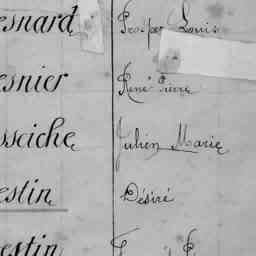 esnard Prosper Louis
esnier René Pierre
sseiche Julien Marie
estin Désiré
estin